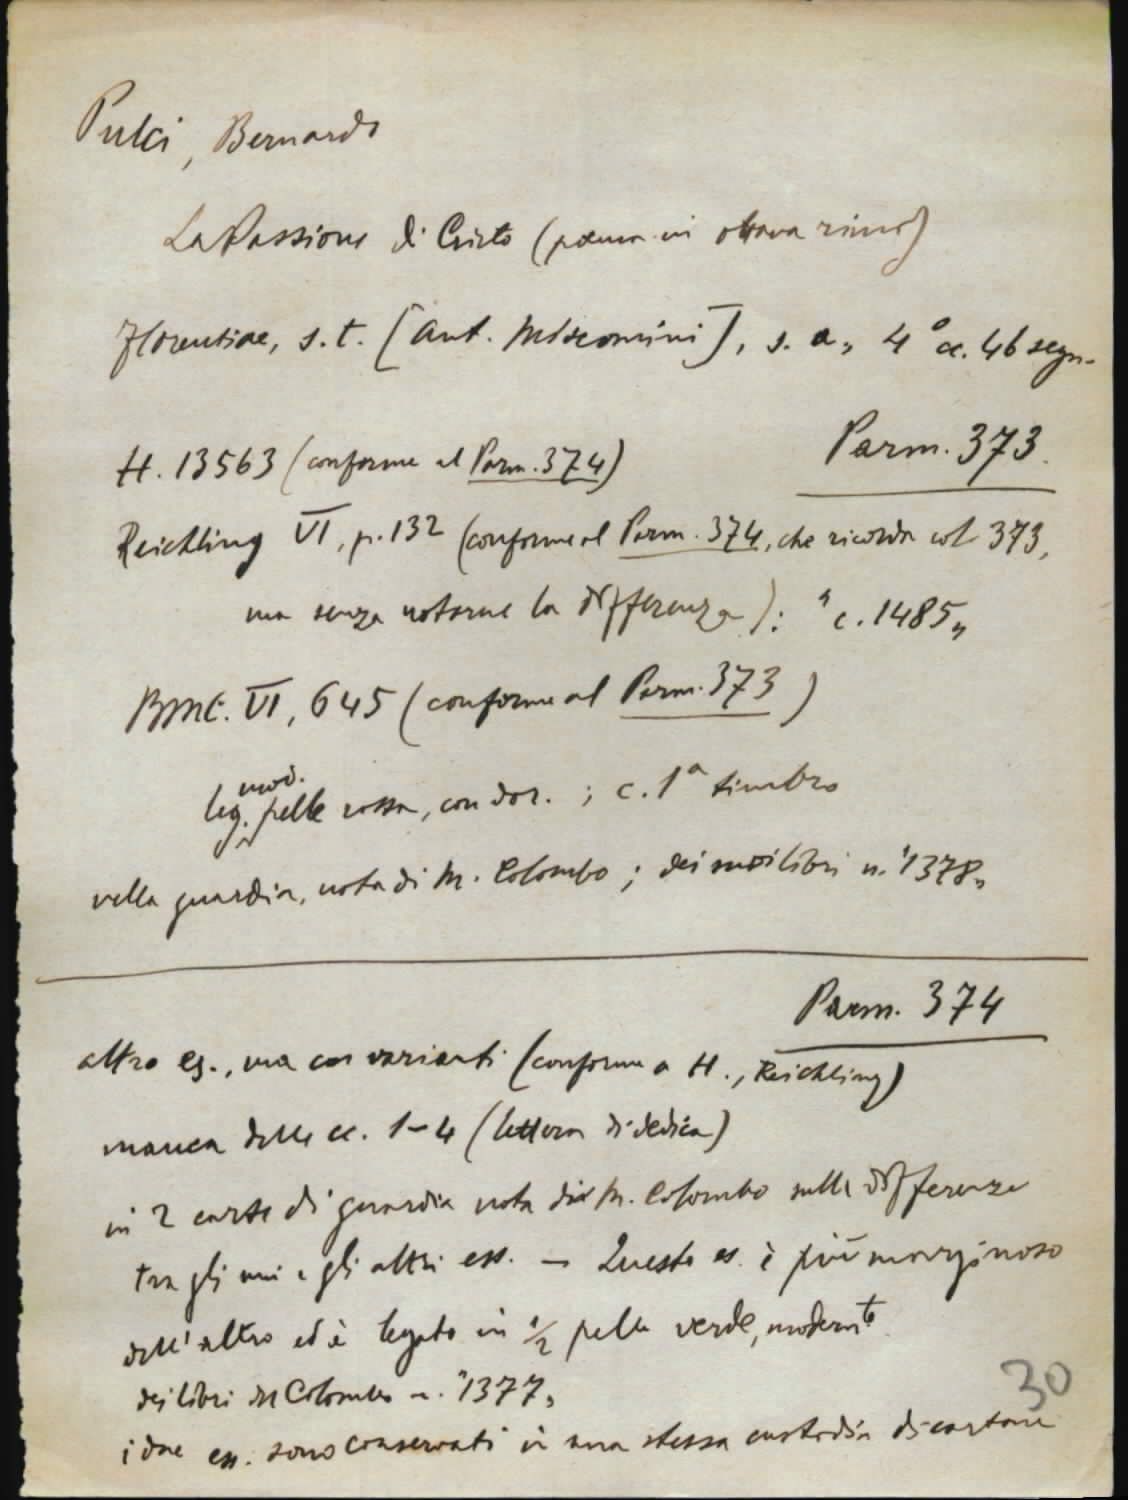 Pulci, Bernardo
La Passione di Cristo (poema in ottava rima)
Florentiae, s. t. [Ant. Miscomini], s. a., 4° cc. 46 segn.
Parm. 373.
H. 13563 (conforme al Parm. 374)
Reichling VI, p. 132 (conforme al Parm. 374, che ricorda col 373,
ma senza notarne la differenza): "c. 1485"
BMC. VI, 645 (conforme al Parm. 373)
leg. mod. pelle rossa, con dor. ; c. 1ª timbro
nella guardia, nota di M. Colombo ; dei suoi libri n. "1378"
Parm. 374
altro es., ma con varianti (conforme a H., Reichling)
manca delle cc. 1-4 (lettera di dedica)
in 2 carte di guardia nota di M. Colombo sulle differenze
tra gli uni e gli altri ess. — Questo es. è più marginoso
dell'altro ed è legato in ½ pelle verde, modernte
dei libri del Colombo n. "1377"
i due ess. sono conservati in una stessa custodia di cartone
30